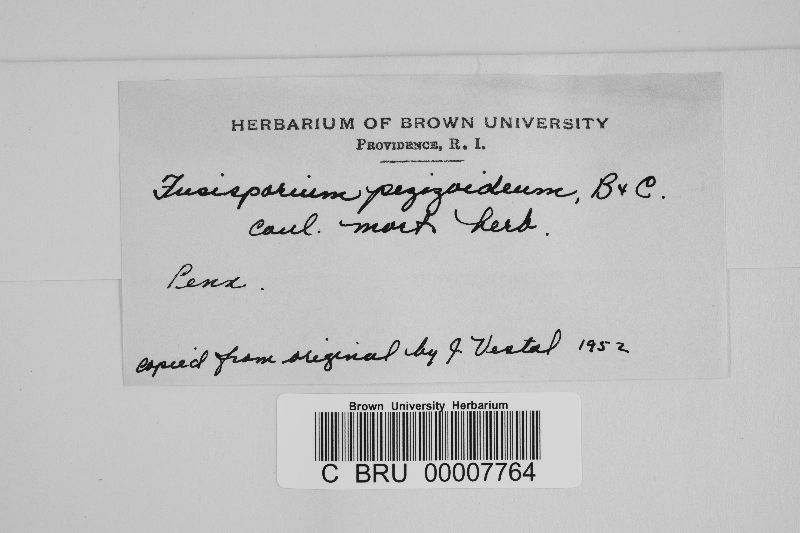 HERBARIUM OF BROWN UNIVERSITY
PROVIDENCE, R. I.
Fusisporium pezizoideum, B & C.
caul. mort. herb.
Penn.
copied from original by J. Vestal 1952
Brown University Herbarium
C BRU 00007764